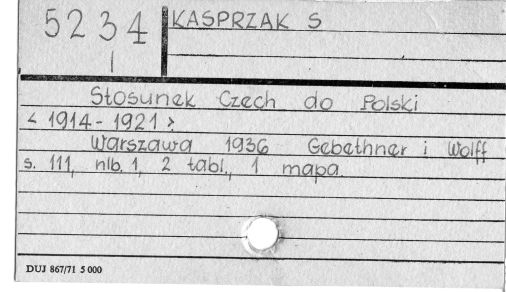 5234
I
KASPRZAK S
Stosunek Czech do Polski
< 1914 - 1921 >
Warszawa 1936 Gebethner i Wolff
s. 111, nlb. 1, 2 tabl., 1 mapa.
DUJ 867/71 5 000